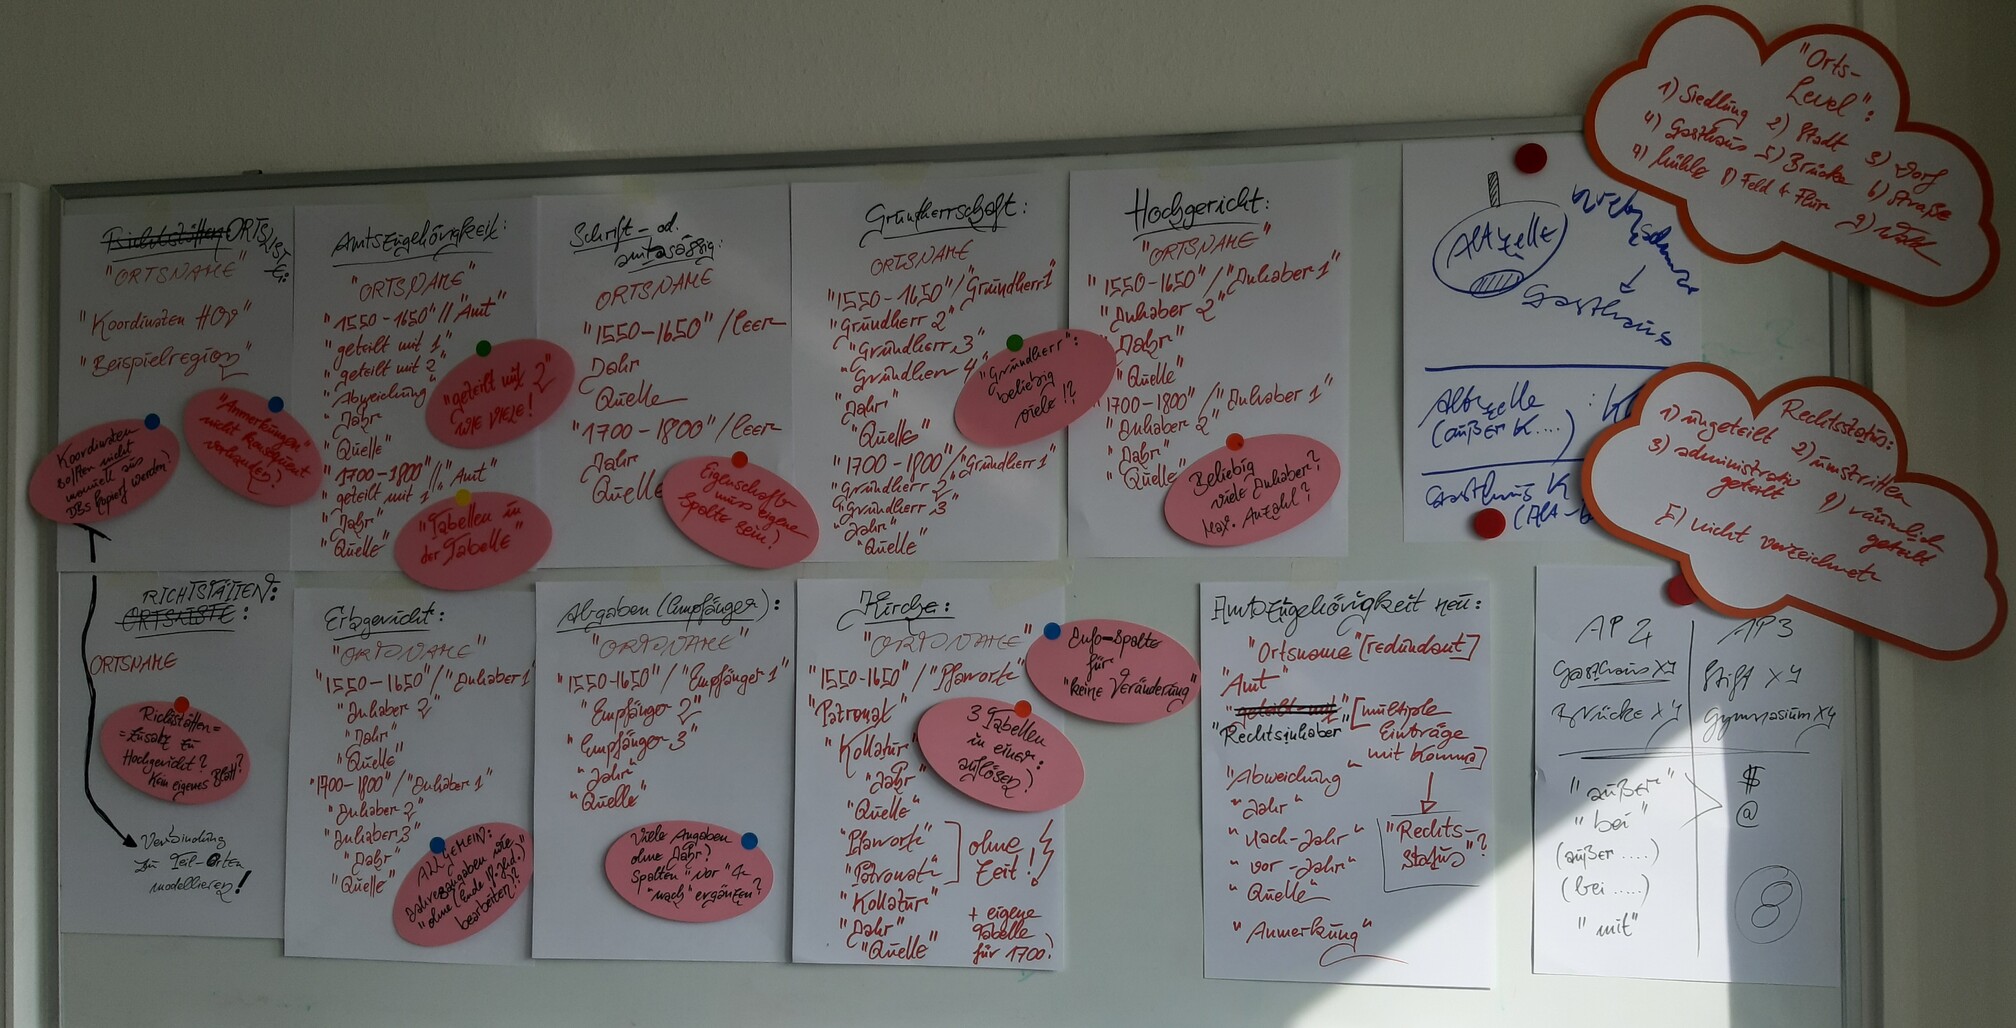 ORTSLISTE:
"ORTSNAME"
"Koordinaten HOV"
"Beispielregion"
Koordinaten
sollten nicht
manuell aus
DBs kopiert werden!
"Anmerkungen"
nicht konsequent
vorhanden?
Amtszugehörigkeit:
"ORTSNAME"
"1550-1650"//"Amt"
"geteilt mit 1"
"geteilt mit 2"
"Abweichung"
"Jahr"
"Quelle"
"1700-1800"//"Amt"
"geteilt mit 1"
"Jahr"
"Quelle"
"geteilt mit 2"
WIE VIELE!
"Tabellen in
der Tabelle"
Schrift- od.
amtsässig:
ORTSNAME
"1550-1650"/leer
Jahr
Quelle
"1700-1800"/leer
Jahr
Quelle
Eigenschaft
muss eigene
Spalte sein?
Grundherrschaft:
ORTSNAME
"1550-1650"/"Grundherr1"
"Grundherr 2"
"Grundherr 3"
"Grundherr 4"
"Jahr"
"Quelle"
"1700-1800"/"Grundherr1"
"Grundherr 2"
"Grundherr 3"
"Jahr"
"Quelle"
"Grundherr":
beliebig
viele!?
Hochgericht:
"ORTSNAME"
"1550-1650"/"Inhaber 1"
"Inhaber 2"
"Jahr"
"Quelle"
"1700-1800"/"Inhaber 1"
"Inhaber 2"
"Jahr"
"Quelle"
Beliebig
viele Inhaber?
Max. Anzahl?
Altzelle
Gasthaus
Altzelle : K
(außer K....)
Gasthaus K
"Orts-
Level":
1) Siedlung 2) Stadt 3) Dorf
4) Gasthaus 5) Brücke 6) Straße
7) Mühle 8) Feld & Flur 9) Wald
Rechtsstatus:
1) ungeteilt 2) umstritten
3) administrativ geteilt 4) räumlich geteilt
5) nicht verzeichnet
RICHTSTÄTTEN:
ORTSLISTE:
ORTSNAME
Richtstätten =
= Zusatz zu
Hochgericht?
Kein eigenes Blatt?
Verbindung
zu Teil-Orten
modellieren!
Erbgericht:
"ORTSNAME"
"1550-1650"/"Inhaber 1"
"Inhaber 2"
"Jahr"
"Quelle"
"1700-1800"/"Inhaber 1"
"Inhaber 2"
"Inhaber 3"
"Jahr"
"Quelle"
ALLGEMEIN:
Jahresangaben wie
bearbeiten?
Abgaben (Empfänger):
"ORTSNAME"
"1550-1650"/"Empfänger 1"
"Empfänger 2"
"Empfänger 3"
"Jahr"
"Quelle"
Viele Angaben
ohne Jahr?
Spalten "vor" &
"nach" ergänzen?
Kirche:
"ORTSNAME"
"1550-1650"/"Pfarrorte"
"Patronat"
"Kollatur"
"Jahr"
"Quelle"
"Pfarrorte"
"Patronat"
"Kollatur"
"Jahr"
"Quelle"
ohne
Zeit!
+ eigene
Tabelle
für 1700!
Info-Spalte
für
"keine Veränderung"
3 Tabellen
in einer:
auflösen?
Amtszugehörigkeit neu:
"Ortsname" [redundant]
"Amt"
"geteilt mit"
"Rechtsinhaber" [multiple
Einträge
mit Komma]
"Abweichung"
"Jahr"
"Nach-Jahr"
"vor-Jahr"
"Quelle"
"Anmerkung"
"Rechts-
status"?
AP2
Gasthaus XY
Brücke XY
AP3
Stift XY
Gymnasium XY
"außer"
"bei"
(außer ....)
(bei .....)
"mit"
$
@
8